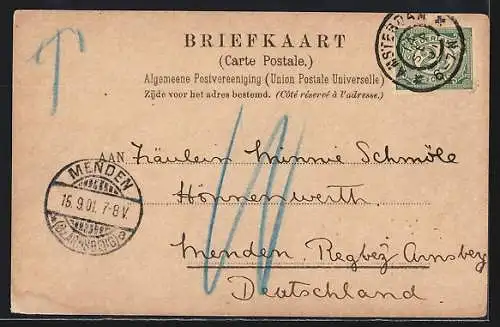 BRIEFKAART
(Carte Postale.)
Algemeene Postvereeniging (Union Postale Universelle)
Zijde voor het adres bestemd. (Côté réservé à l'adresse.)
AMSTERDAM
T
AAN Fräulein Minnie Schmöle
Hönnenwerth
Menden, Regbez Arnsberg
Deutschland.
MENDEN
15.9.01. 7-8 V.